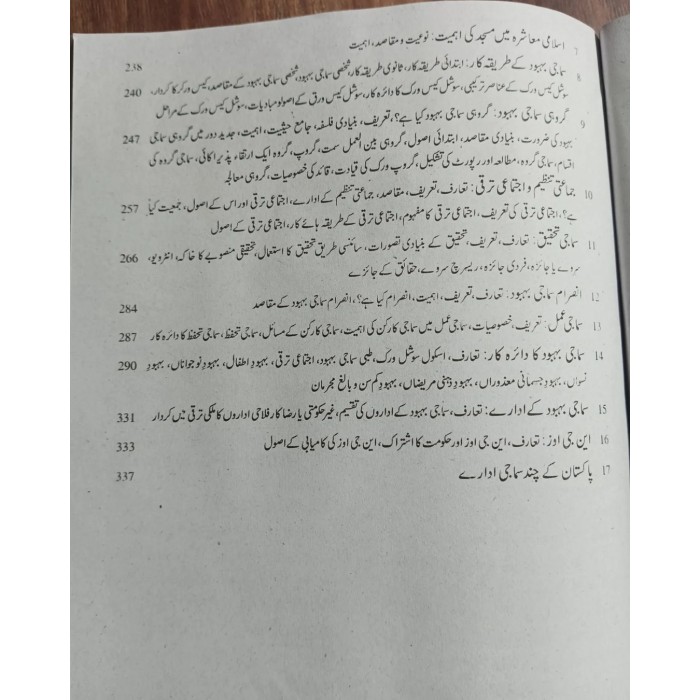 7 اسلامی معاشرہ میں مسجد کی اہمیت: نوعیت و مقاصد، اہمیت 238
8 سماجی بہبود کے طریقہ کار: ابتدائی طریقہ کار، ثانوی طریقہ کار، شخصی سماجی بہبود، شخصی سماجی بہبود کے مقاصد، کیس ورکر کا کردار،
سوشل کیس ورک کے عناصر ترکیبی، سوشل کیس ورک کا دائرہ کار، سوشل کیس ورق کے اصول و مبادیات، سوشل کیس ورک کے مراحل 240
9 گروہی سماجی بہبود: گروہی سماجی بہبود کیا ہے؟، تعریف، بنیادی فلسفہ، جامع حیثیت، اہمیت، جدید دور میں گروہی سماجی
بہبود کی ضرورت، بنیادی مقاصد، ابتدائی اصول، گروہی بین العمل سمت، گروپ، گروہ ایک ارتقاء پذیر اکائی، سماجی گروہ کی 247
اقسام، سماجی گروہ، مطالعہ اور رپورٹ کی تشکیل، گروپ ورک کی قیادت، قائد کی خصوصیات، گروہی معالجہ
10 جماعتی تنظیم و اجتماعی ترقی: تعارف، تعریف، مقاصد، جماعتی تنظیم کے ادارے، اجتماعی ترقی اور اس کے اصول، جمعیت کیا 257
ہے؟، اجتماعی ترقی کی تعریف، اجتماعی ترقی کا مفہوم، اجتماعی ترقی کے طریقہ ہائے کار، اجتماعی ترقی کے اصول
11 سماجی تحقیق: تعارف، تعریف، تحقیق کے بنیادی تصورات، سائنسی طریق تحقیق کا استعمال، تحقیقی منصوبے کا خاکہ، انٹرویو، 266
سروے یا جائزہ، فردی جائزہ، ریسرچ سروے، حقائق کے جائزے
12 انصرام سماجی بہبود: تعارف، تعریف، اہمیت، انصرام کیا ہے؟، انصرام سماجی بہبود کے مقاصد 284
13 سماجی عمل: تعریف، خصوصیات، سماجی عمل میں سماجی کارکن کی اہمیت، سماجی کارکن کے مسائل، سماجی تحفظ، سماجی تحفظ کا دائرہ کار 287
14 سماجی بہبود کا دائرہ کار: تعارف، اسکول سوشل ورک، طبی سماجی بہبود، اجتماعی ترقی، بہبود اطفال، بہبود نوجوانان، بہبود 290
نسواں، بہبود جسمانی معذوراں، بہبود ذہنی مریضاں، بہبود کم سن و بالغ مجرمان
15 سماجی بہبود کے ادارے: تعارف، سماجی بہبود کے اداروں کی تقسیم، غیر حکومتی یا رضا کار فلاحی اداروں کا ملکی ترقی میں کردار 331
16 این جی اوز: تعارف، این جی اوز اور حکومت کا اشتراک، این جی اوز کی کامیابی کے اصول 333
17 پاکستان کے چند سماجی ادارے 337